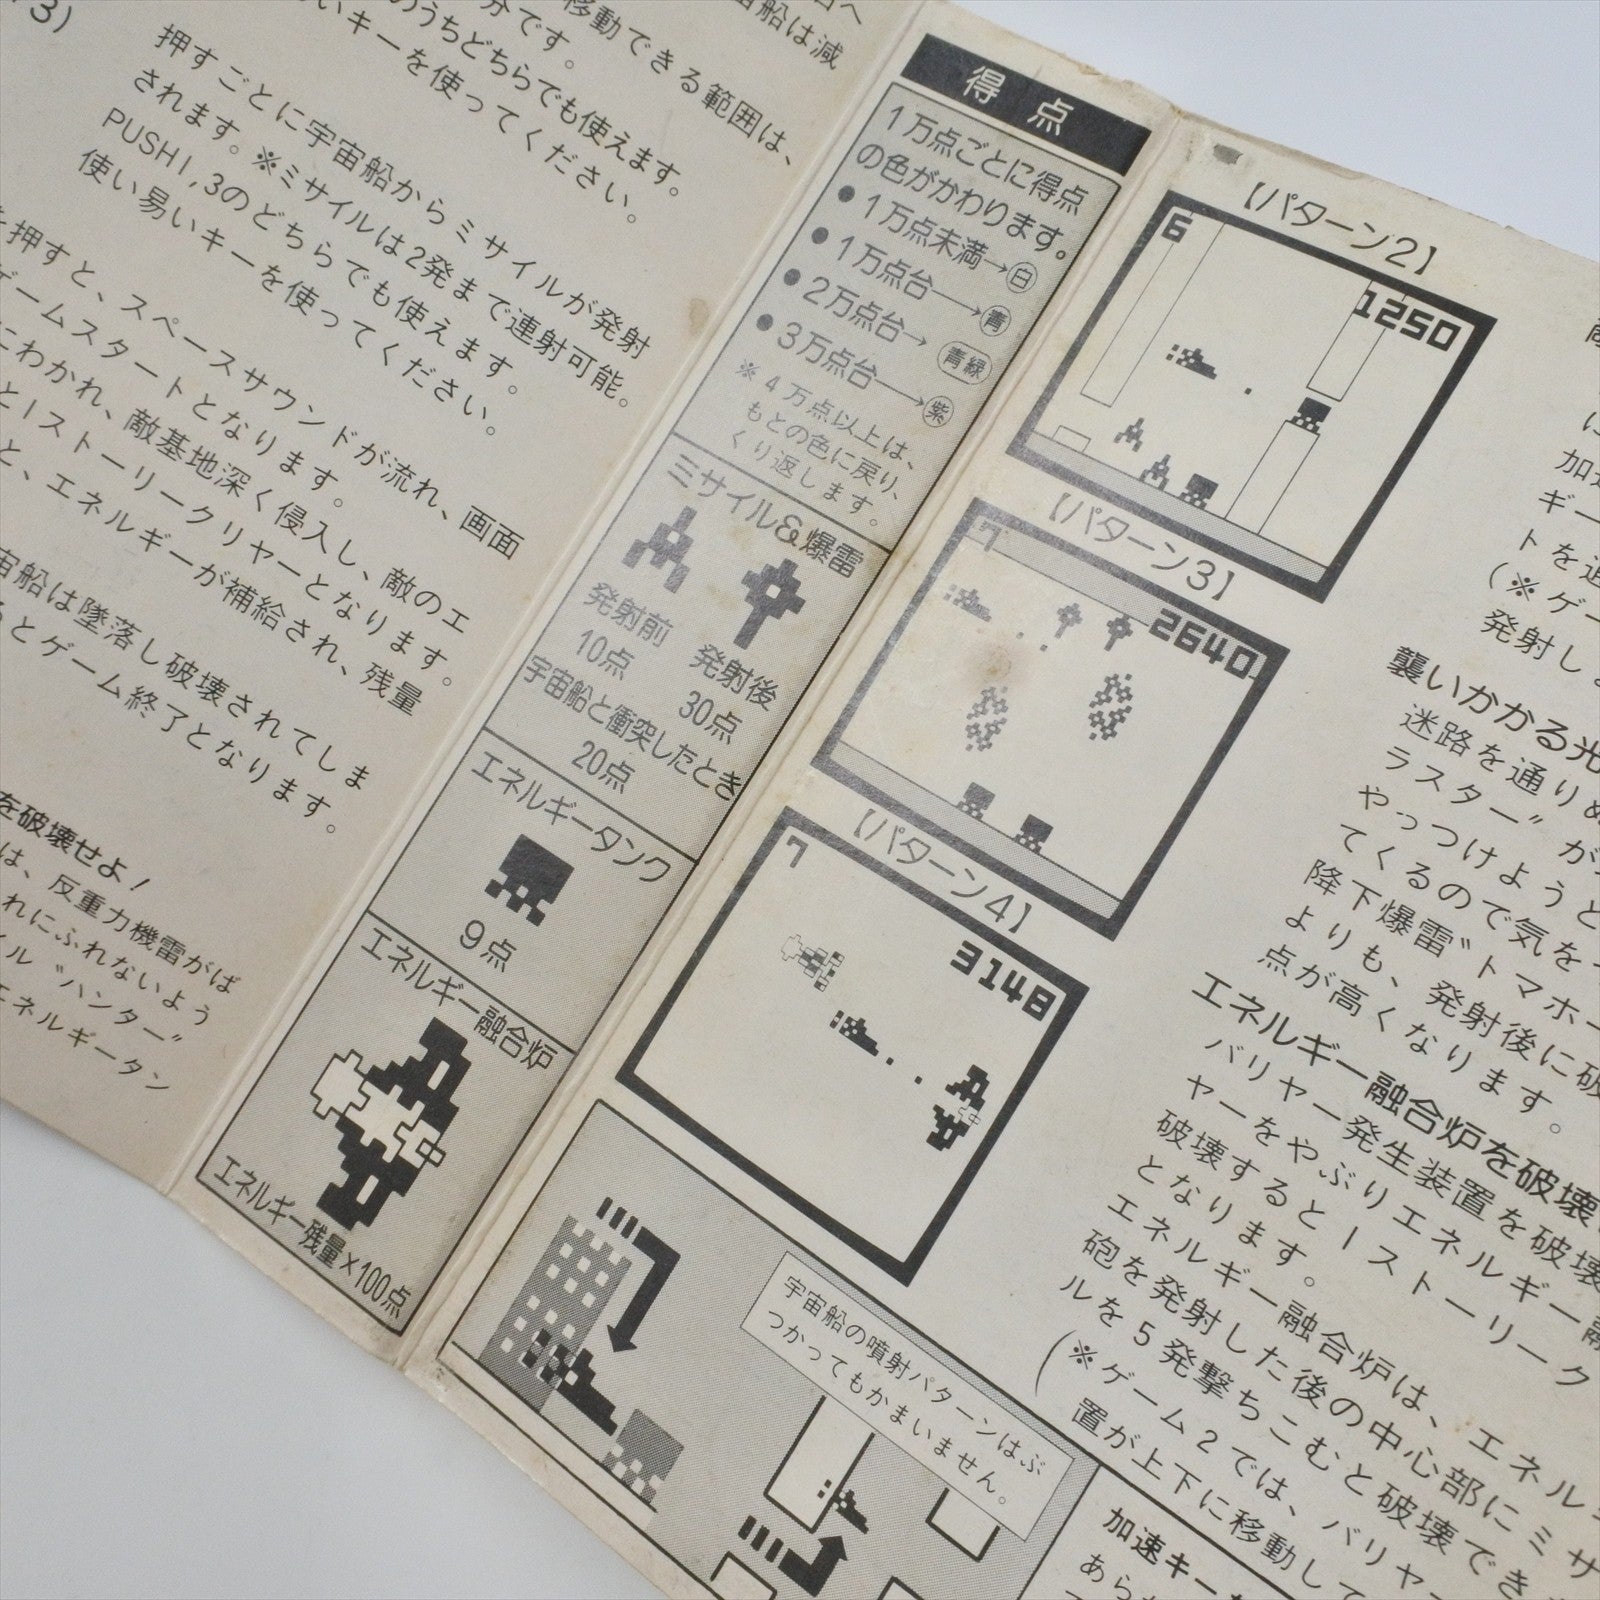 /3)
移動できる範囲は、
宙船は減
分です。
のうちどちらでも使えます。
いキーを使ってください。
押すごとに宇宙船からミサイルが発射
されます。※ミサイルは2発まで連射可能。
PUSH1,3のどちらでも使えます。
使い易いキーを使ってください。
を押すと、スペースサウンドが流れ、画面
ゲームスタートとなります。
にわかれ、敵基地深く侵入し、敵のエ
と1ストーリークリヤーとなります。
と、エネルギーが補給され、残量
宙船は墜落し破壊されてしま
るとゲーム終了となります。
を破壊せよ!
は、反重力機雷がば
れにふれないよう
イル〝ハンター〟
エネルギータン
得点
1万点ごとに得点
の色がかわります。
●1万点未満→白
●1万点台→青
●2万点台→青緑
●3万点台→紫
※4万点以上は、
もとの色に戻り、
くり返します。
ミサイル&爆雷
発射前
10点
発射後
30点
宇宙船と衝突したとき
20点
エネルギータンク
9点
エネルギー融合炉
エネルギー残量×100点
【パターン2】
6
1250
【パターン3】
7
2640
【パターン4】
7
3148
宇宙船の噴射パターンはぶ
つかってもかまいません。
加速
ギー
トを追
(※ゲー
発射し
襲いかかる光
迷路を通りぬ
ラスター〟が
やっつけようと
てくるので気を
降下爆雷〝トマホー
よりも、発射後に破
点が高くなります。
エネルギー融合炉を破壊
バリヤー発生装置を破壊
ヤーをやぶりエネルギー融
破壊すると1ストーリーク
となります。
エネルギー融合炉は、エネル
砲を発射した後の中心部にミサ
ルを5発撃ちこむと破壊でき
(※ゲーム2では、バリヤー
置が上下に移動して
加速キー
あら